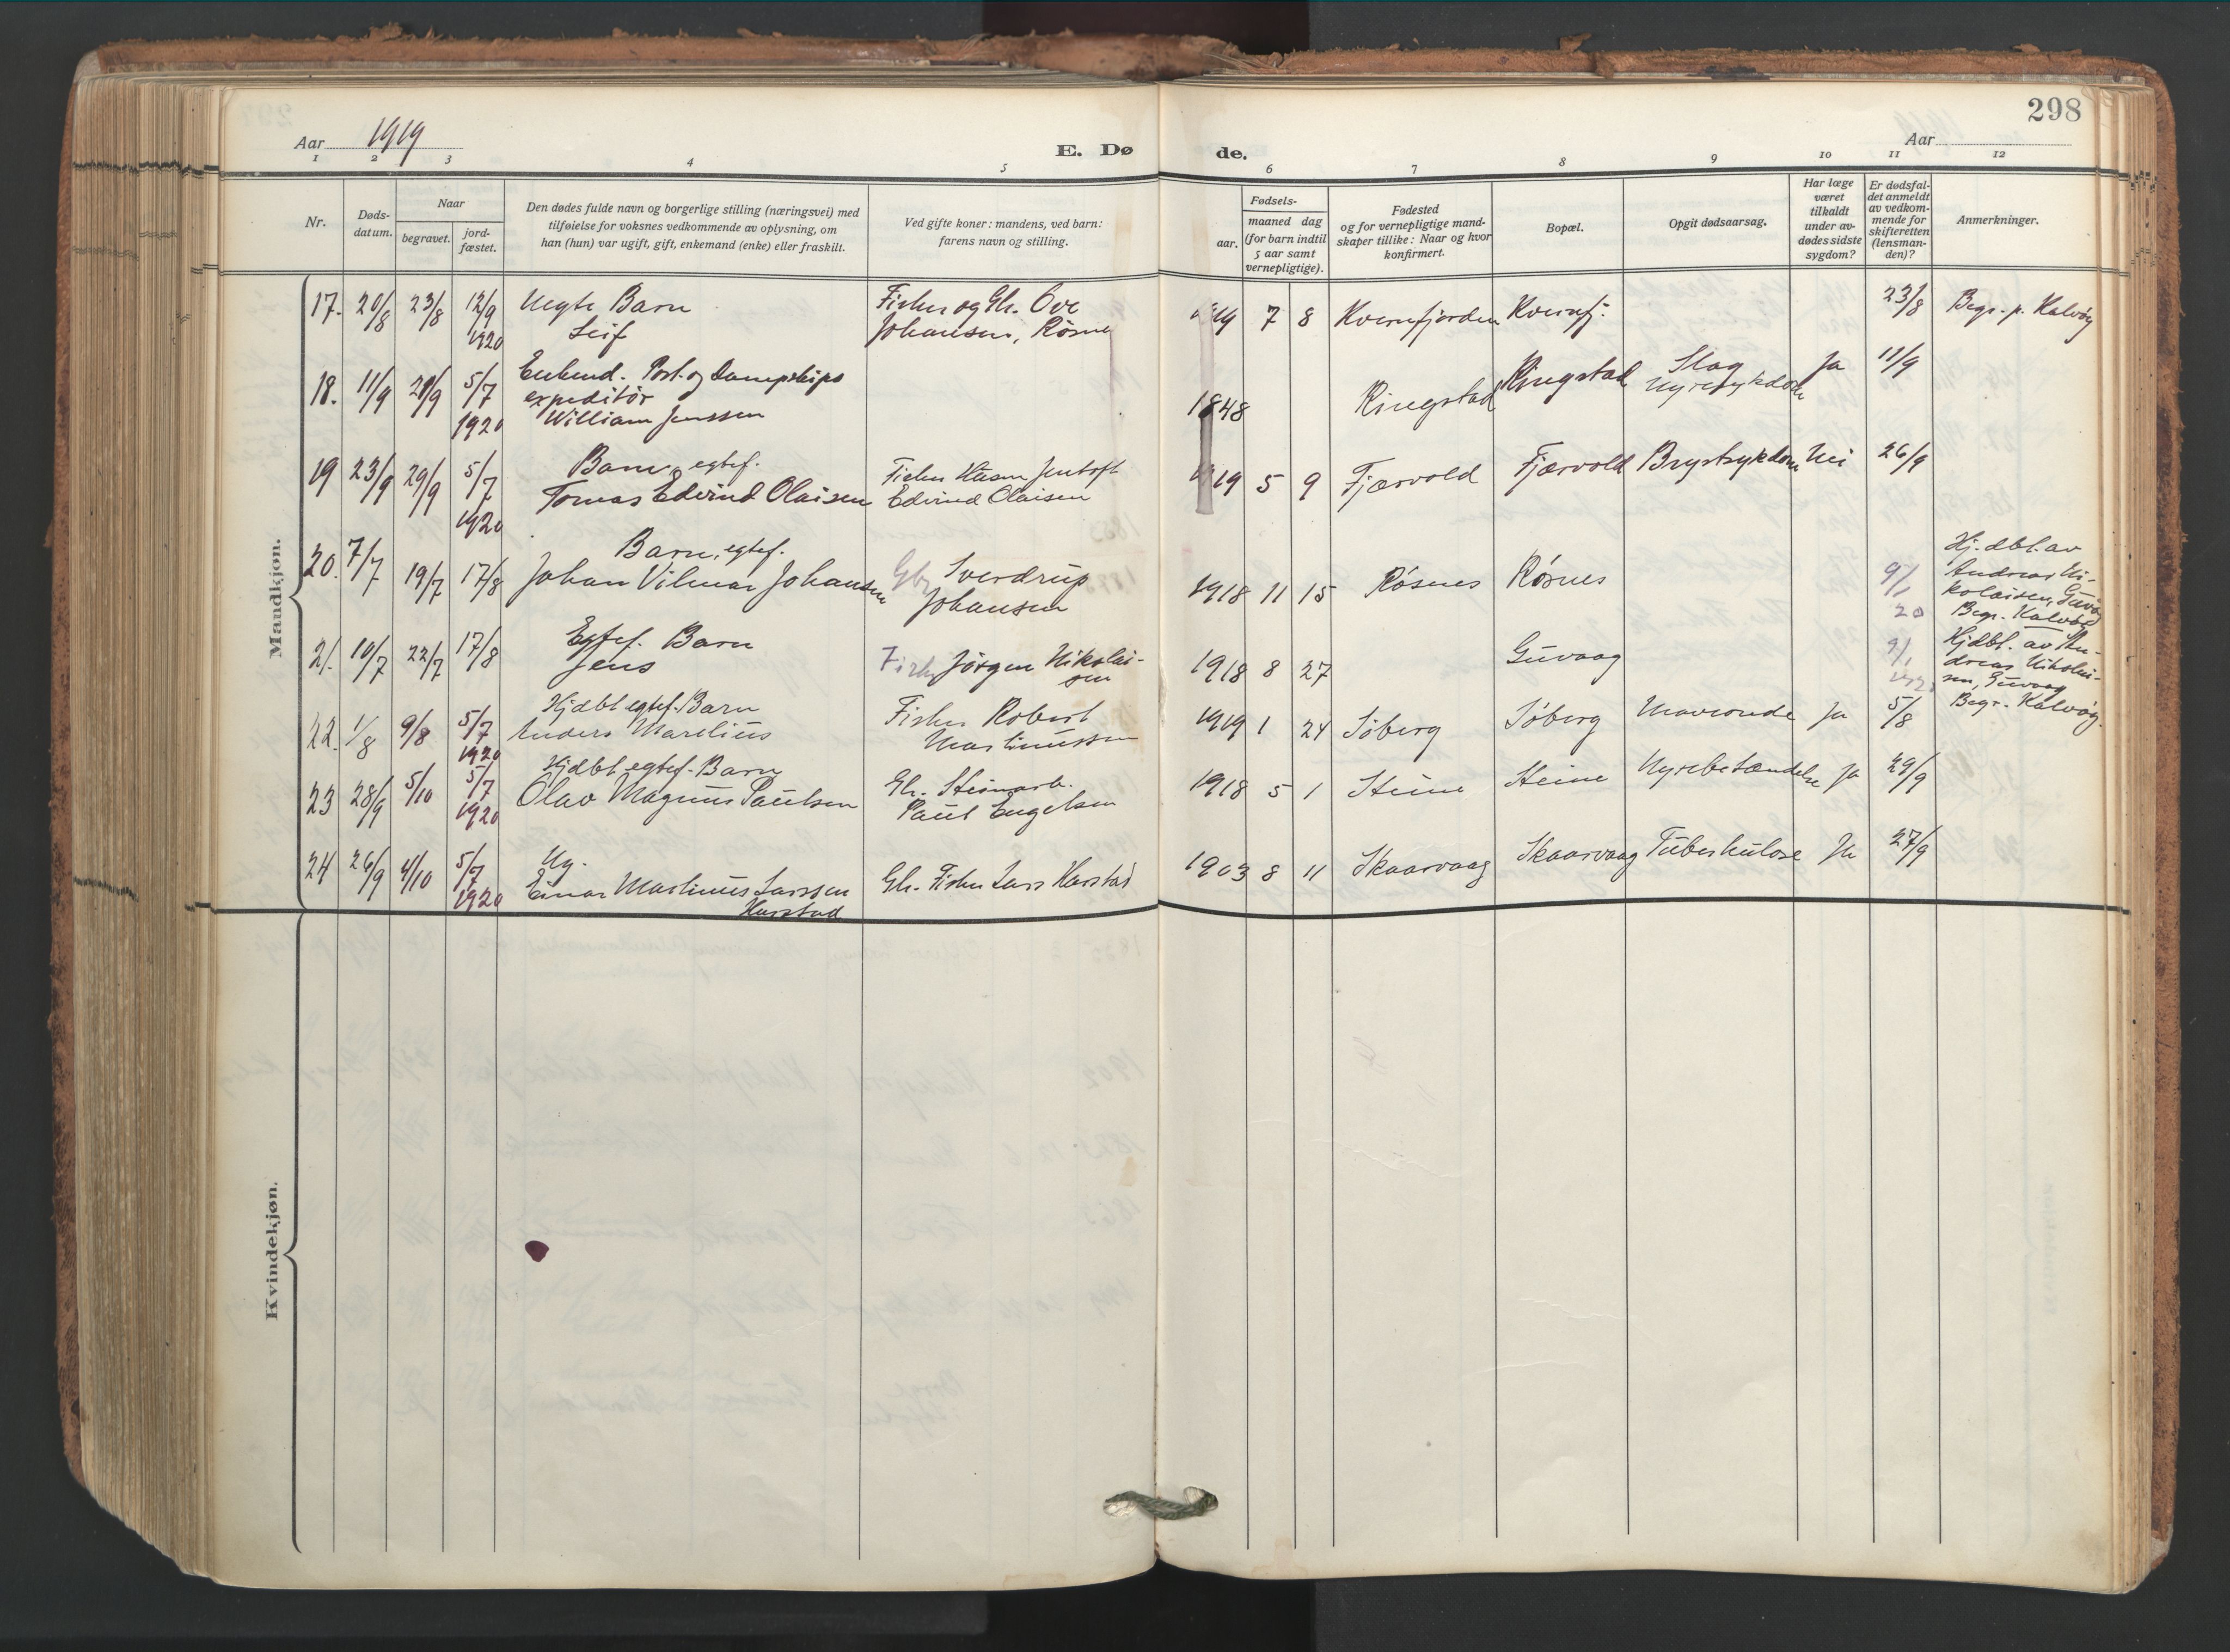 298
Aar 1919
E. Dø
de.
Aar
1 2 3 4 5 6 7 8 9 10 11 12
Nr.
Døds-
datum.
Naar
begravet.
jord-
fæstet.
Den dødes fulde navn og borgerlige stilling (næringsvei) med
tilføielse for voksnes vedkommende av oplysning, om
han (hun) var ugift, gift, enkemand (enke) eller fraskilt.
Ved gifte koner: mandens, ved barn:
farens navn og stilling.
Fødsels-
aar.
maaned dag
(for barn indtil
5 aar samt
vernepligtige).
Fødested
og for vernepligtige mand-
skaper tillike: Naar og hvor
konfirmert.
Bopæl.
Opgit dødsaarsag.
Har læge
været
tilkaldt
under av-
dødes sidste
sygdom?
Er dødsfal-
det anmeldt
av vedkom-
mende for
skifteretten
(lensman-
den)?
Anmerkninger.
Mandkjøn.
17. 20/8 23/8 12/9 1920
Uegte Barn
Leif
Fisker og Gbr. Ove
Johansen, Røsnes
1919 7 8 Kvernfjorden Kvernfj: 23/8 Begr. p. Kalvøy
18. 11/9 20/9 5/7 1920
Enkemd. Post. og Dampskips
expeditör
William Jenssen
1848 Ringstad Ringstad Slag
Nyresykdom Ja 11/9
19 23/9 29/9 5/7 1920
Barn, egtef.
Tomas Edvind Olaisen
Fisker Jentoft
Edvind Olaisen
1919 5 9 Fjærvold Fjærvold Brystsykdom Nei 26/9
20. 7/7 19/7 17/8
Barn, egtef.
Johan Vilmar Johansen
Gbr Sverdrup
Johansen
1918 11 15 Røsnes Røsnes 9/1 20
Hj. dbt. av
Andreas Ni-
kolaisen, Guvåg
Begr. Kalvøy
21. 10/7 22/7 17/8
Egtef. Barn
Jens
Fisker Jørgen Nikolai-
sen
1918 8 27 Guvaag 9/1 1920
Hjdbt. av An-
dreas Nikolai-
sen, Guvaag
Begr. Kalvøy.
22. 1/8 9/8 5/7 1920
Hjdbt egtef. Barn
Anders Marelius
Fisker Robert
Martinussen
1919 1 24 Søberg Søberg Mavronde Ja 5/8
23 28/9 5/10 5/7 1920
Hjdbt egtef. Barn
Olav Magnus Paulsen
Gbr. Steinarb.
Paul Engelsen
1918 5 1 Steine Steine Nyrebetændelse Ja 29/9
24 26/9 4/10 5/7 1920
Ug.
Einar Martinus Larssen
Harstad
Gbr. Fisker Lars Harstad
1903 8 11 Skaarvaag Skaarvaag Tuberkulose Ja 27/9
Kvindekjøn.